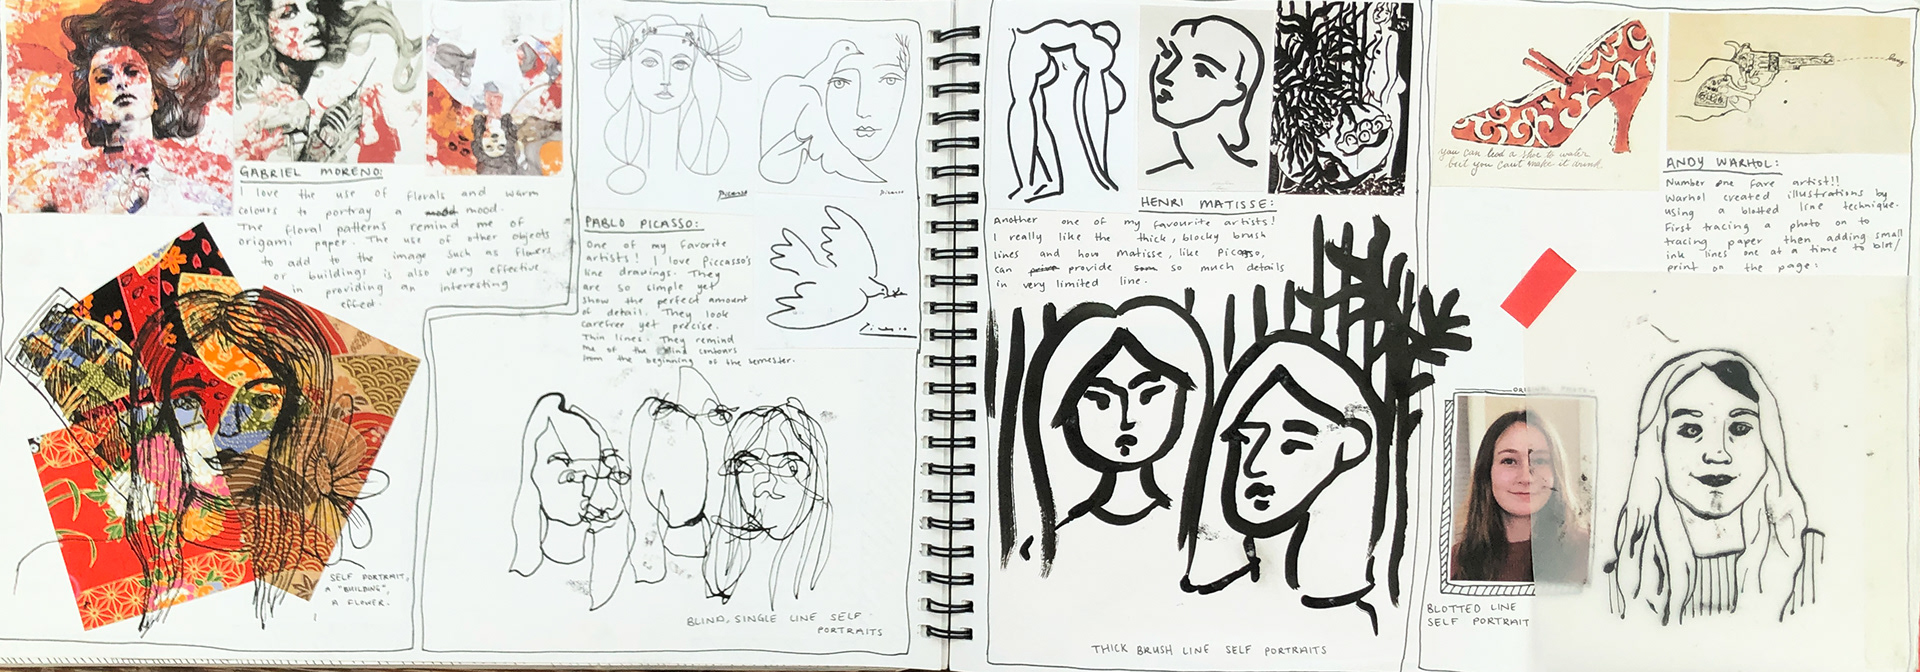 GABRIEL MORENO:
I love the use of florals and warm
colours to portray a mood mood.
The floral patterns remind me of
origami paper. The use of other objects
to add to the image such as flowers
or buildings is also very effective
in providing an interesting
effect.
SELF PORTRAIT,
A "BUILDING",
A FLOWER.
Picasso
Picasso
PABLO PICASSO:
One of my favorite
artists! I love Piccasso's
line drawings. They
are so simple yet
show the perfect amount
of detail. They look
carefree yet precise.
Thin lines. They remind
me of the blind contours
from the beginning of the semester.
Picasso
BLIND, SINGLE LINE SELF
PORTRAITS
HENRI MATISSE:
Another one of my favourite artists!
I really like the thick, blocky brush
lines and how Matisse, like Picasso,
can provide so much details
in very limited line.
THICK BRUSH LINE SELF PORTRAITS
you can lead a shoe to water
but you cant make it drink
Bang
ANDY WARHOL:
Number one fave artist!!
Warhol created illustrations by
using a blotted line technique.
First tracing a photo on to
tracing paper then adding small
ink lines one at a time to blot/
print on the page:
BLOTTED LINE
SELF PORTRAIT